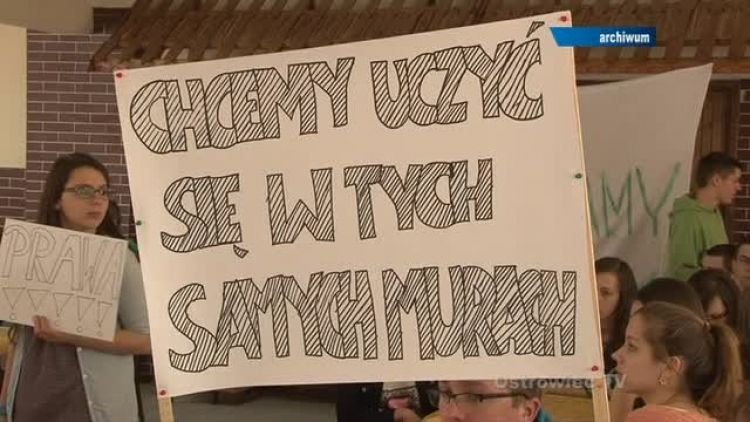 archiwum
CHCEMY UCZYĆ
SIĘ W TYCH
SAMYCH MURACH
PRAWA
!!!!!!
AMY
Ostrowiec TV